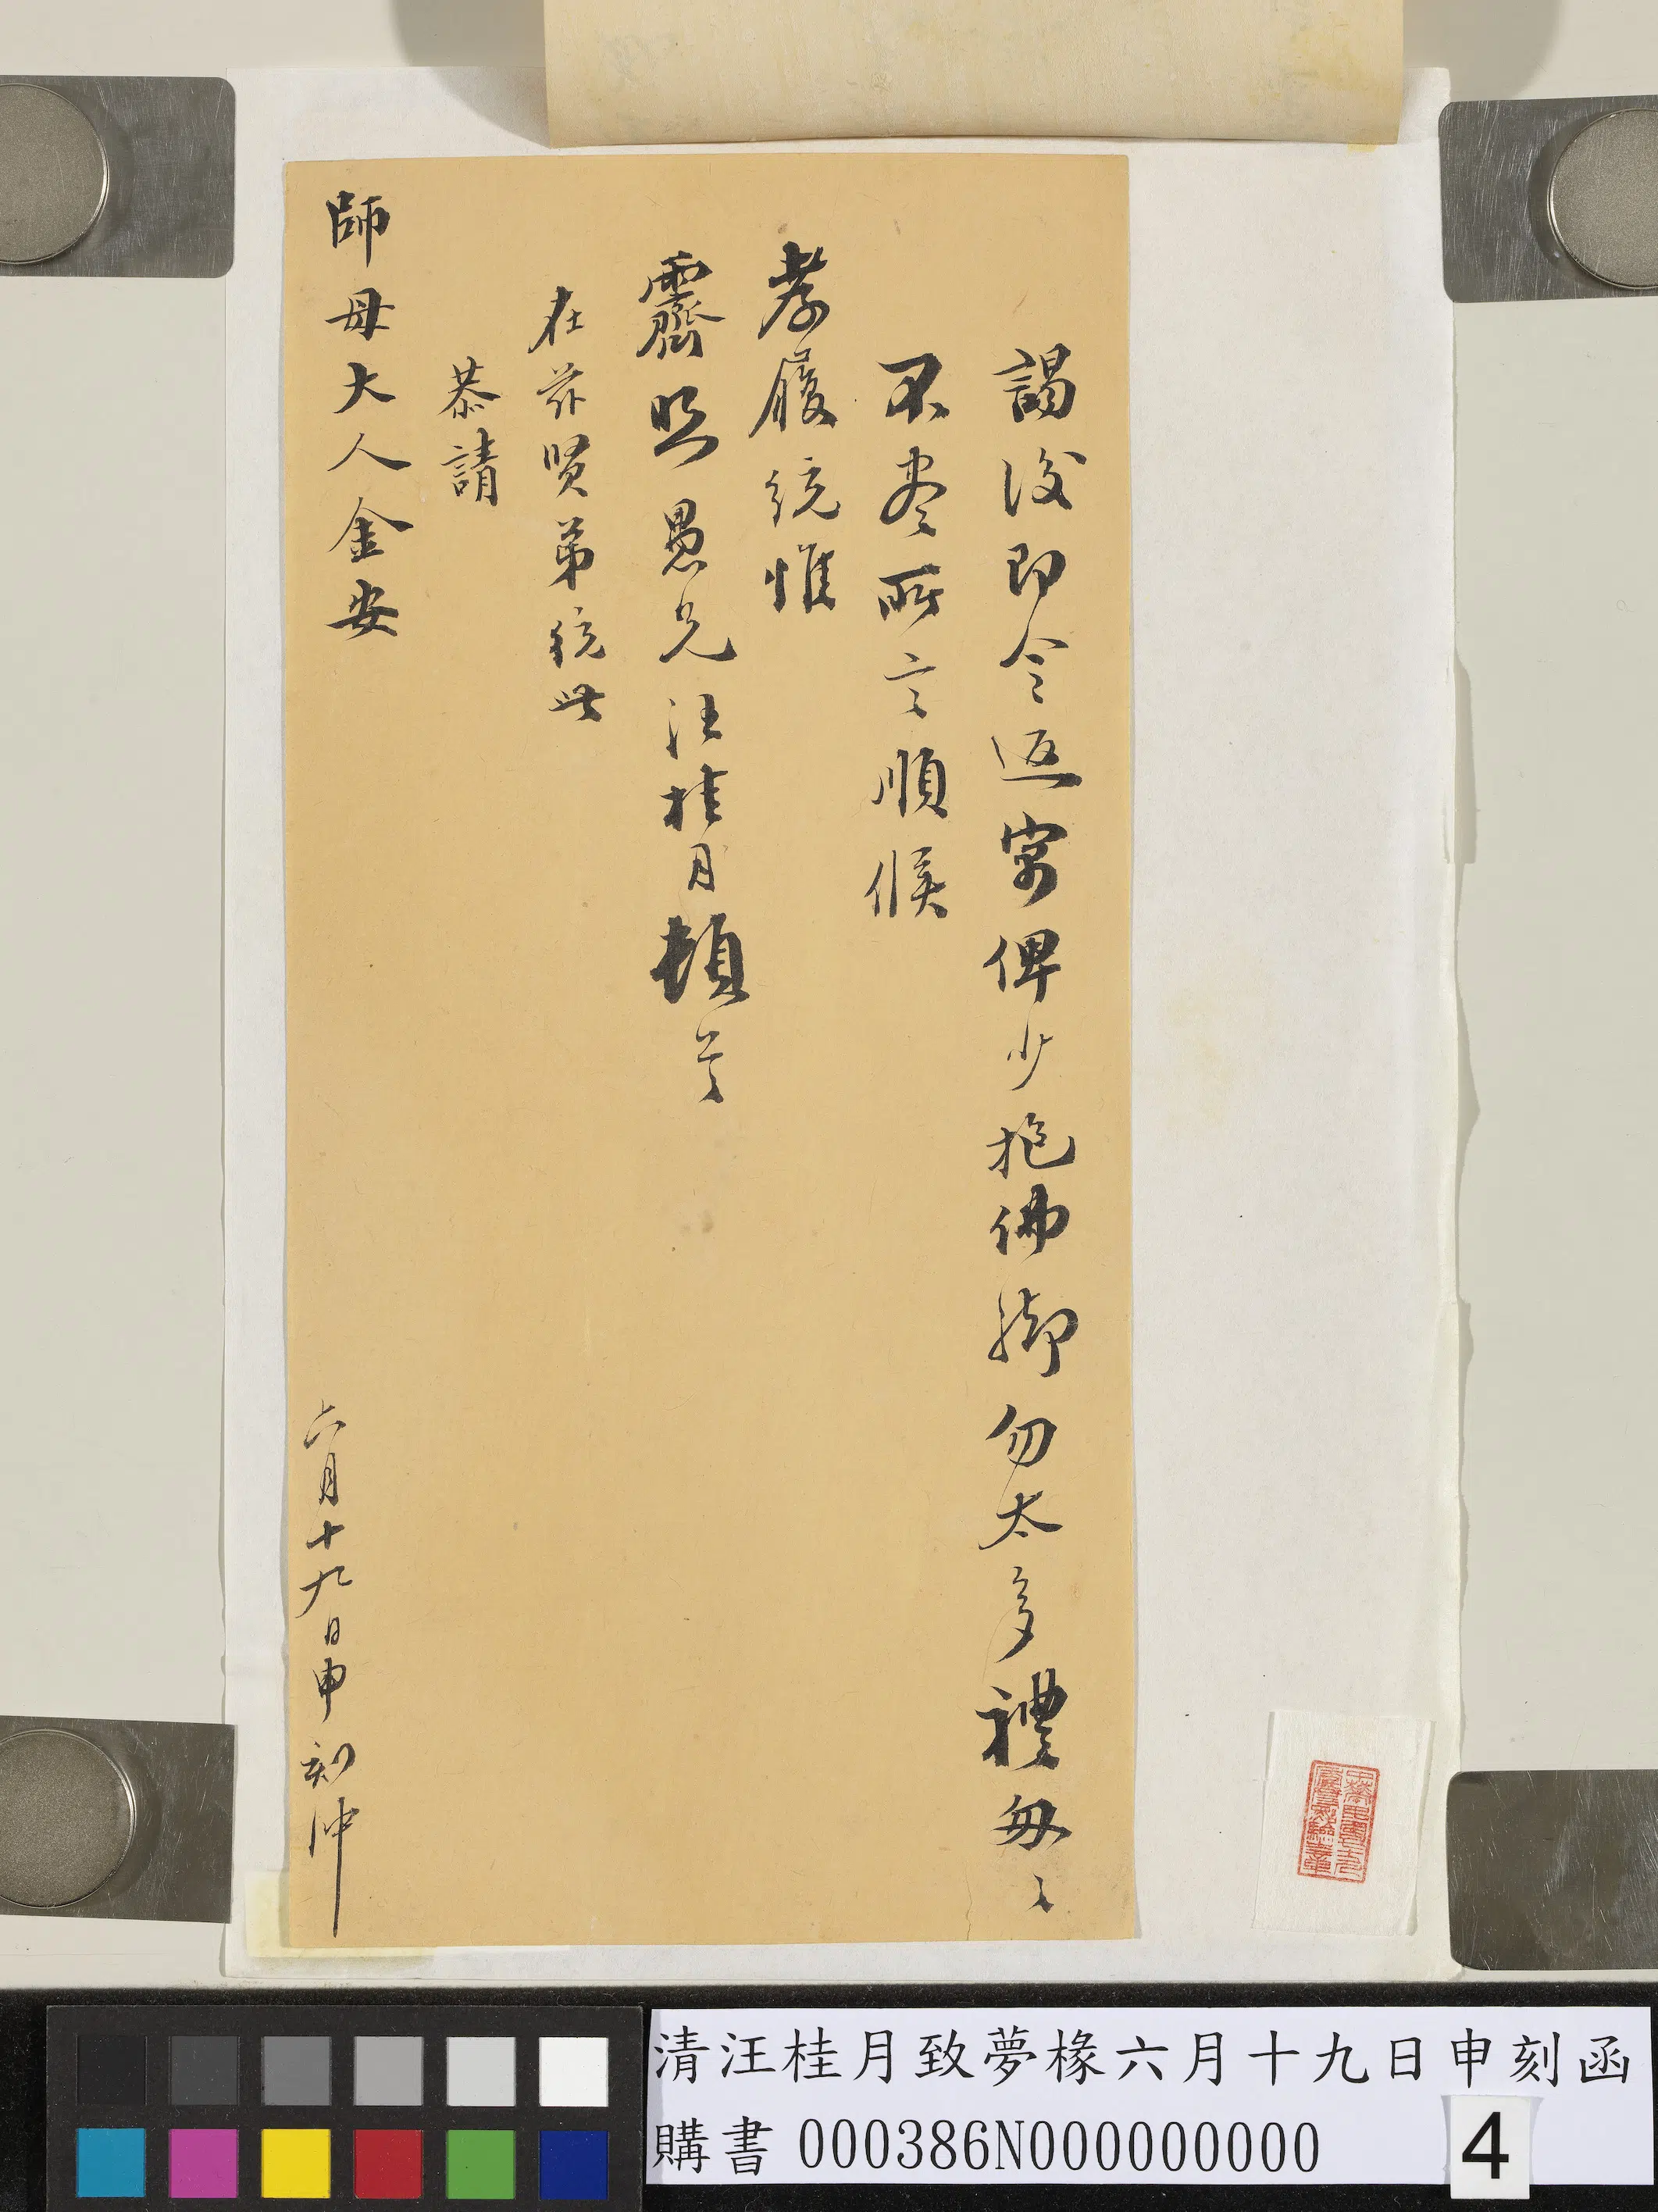 謁後即令返寓俾少抱佛腳勿太多禮毋〻
不盡所言順候
孝履統惟
霽照愚兄汪桂月頓首
在茲賢弟統此
恭請
師母大人金安
六月十九日申刻沖
清汪桂月致夢椽六月十九日申刻函
購書 000386N000000000
4